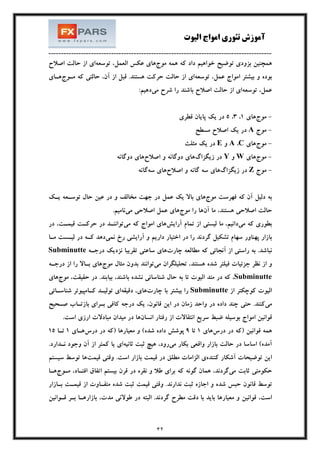 FXPARS
آموزش تئوری امواج الیوت
همچنین بزودی توضیح خواهیم داد که همه موج‌های عکس العمل، توسعه‌ای از حالت اصلاح
بوده و بیشتر امواج عمل، توسعه‌ای از حالت حرکت هستند. قبل از آن، حالتی که موج‌های
عمل، توسعه‌ای از حالت اصلاح باشند را شرح می‌دهیم:
- موج‌های ۱، ۳، ۵ در یک پایان قطری
- موج A در یک اصلاح مسطح
- موج‌های A، C و E در یک مثلث
- موج‌های W و Y در زیگزاگ‌های دوگانه و اصلاح‌های دوگانه
- موج Z در زیگزاگ‌های سه گانه و اصلاح‌های سه‌گانه
به دلیل آن که فهرست موج‌های بالا یک عمل در جهت مخالف و در عین حال توسعه یک
حالت اصلاحی هستند، ما آن‌ها را موج‌های عمل اصلاحی می‌نامیم.
بطوری که می‌دانیم، ما لیستی از تمام آرایش‌های امواج که می‌توانند در حرکت قیمت، در
بازار پهناور سهام تشکیل گردند را در اختیار داریم و آرایشی رخ نمی‌دهد که در لیست ما
نباشد. به راستی از آنجائی که مطالعه چارت‌های ساعتی تقریبا نزدیک درجه Subminutte
و از نظر جزئیات فیلتر شده هستند، تحلیلگران می‌توانند بدون مثال موج‌های بالا را از درجه
Subminutte، که در متد الیوت تا به حال شناسائی نشده باشند، بیابند. در حقیقت، موج‌های
الیوت کوچکتر از Subminutte را بیشتر با چارت‌های، دقیقه‌ای تولید کامپیوتر شناسائی
می‌کنند. حتی چند داده در واحد زمان در این قانون، یک درجه کافی برای بازتاب صحیح
قوانین امواج بوسیله ضبط سریع انتقالات از رفتار انسان‌ها در میدان مبادلات ارزی است.
همه قوانین (که در درس‌های ۱ تا ۹ پوشش داده شده) و معیارها (که در درس‌های ۱ تا ۱۵
آمده) اساسا در حالت بازار واقعی بکار می‌رود، هیچ ثبت ثانیه‌ای یا کمتر از آن وجود ندارد.
این توضیحات آشکار کننده‌ی الزامات مطلق در قیمت بازار است. وقتی قیمت‌ها توسط سیستم
حکومتی ثابت می‌گردند، همان گونه که برای طلا و نقره در قرن بیستم اتفاق افتاد، موج‌ها
توسط قانون حبس شده و اجازه ثبت ندارند. وقتی قیمت ثبت شده متفاوت از قیمت بازار
است، قوانین و معیارها باید با دقت مطرح گردند. البته در طولانی مدت، بازارها بر قوانین
۲۲